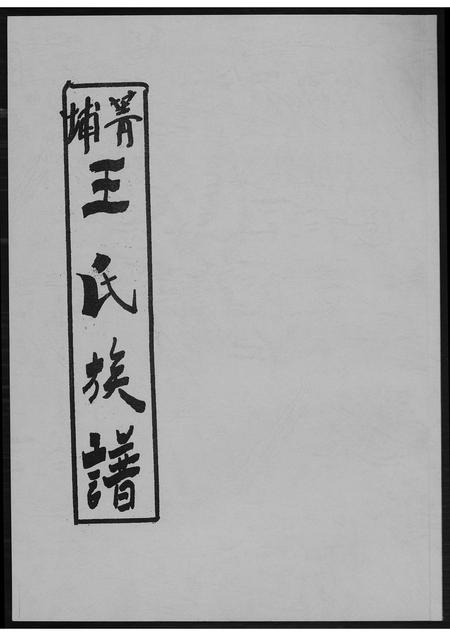 菁埔
王氏族譜